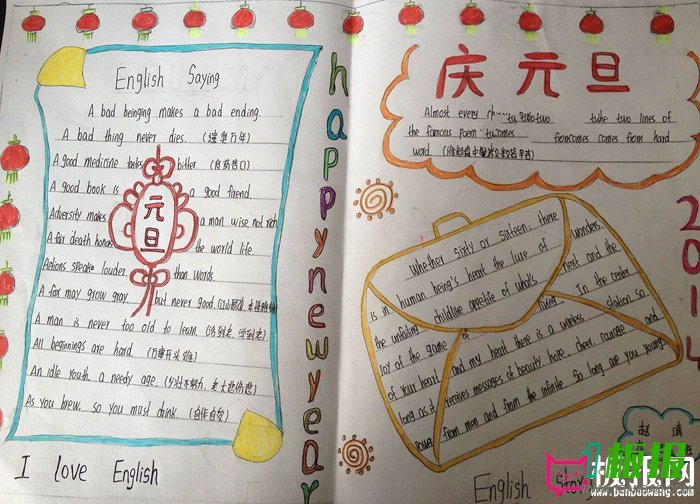 English Saying
A bad beinging makes a bad ending.
A bad thing never dies. (遗臭万年)
A good medicine tastes bitter. (良药苦口)
A good book is a good friend.
Adversity makes a man wise, not rich.
A far death honors the world life.
Actions speak louder than words
A fax may grow gray, but never good.
A man is never too old to learn. (活到老,学到老)
All beginnings are hard. (万事开头难)
An idle youth, a needy age. (少壮不努力,老大徒伤悲)
As you brew, so you must drink. (自作自受)
I love English
元旦
happy new year
庆元旦
Almost every two two lines of
the famous poem comes from comes from hard
word. (谁知盘中餐粒粒皆辛苦)
2014
Whether sixty or sixteen, there
is in human being's heart the lure of wonders,
the unfailing childlike appetite of what's next and the
joy of the game of living. In the center
of your heart and my heart there is a wireless station so
long as it receives messages of beauty, hope, cheer, courage and
power from men and from the infinite, so long are you young.
English Story
赵
清
板报网
www.banbaowang.com